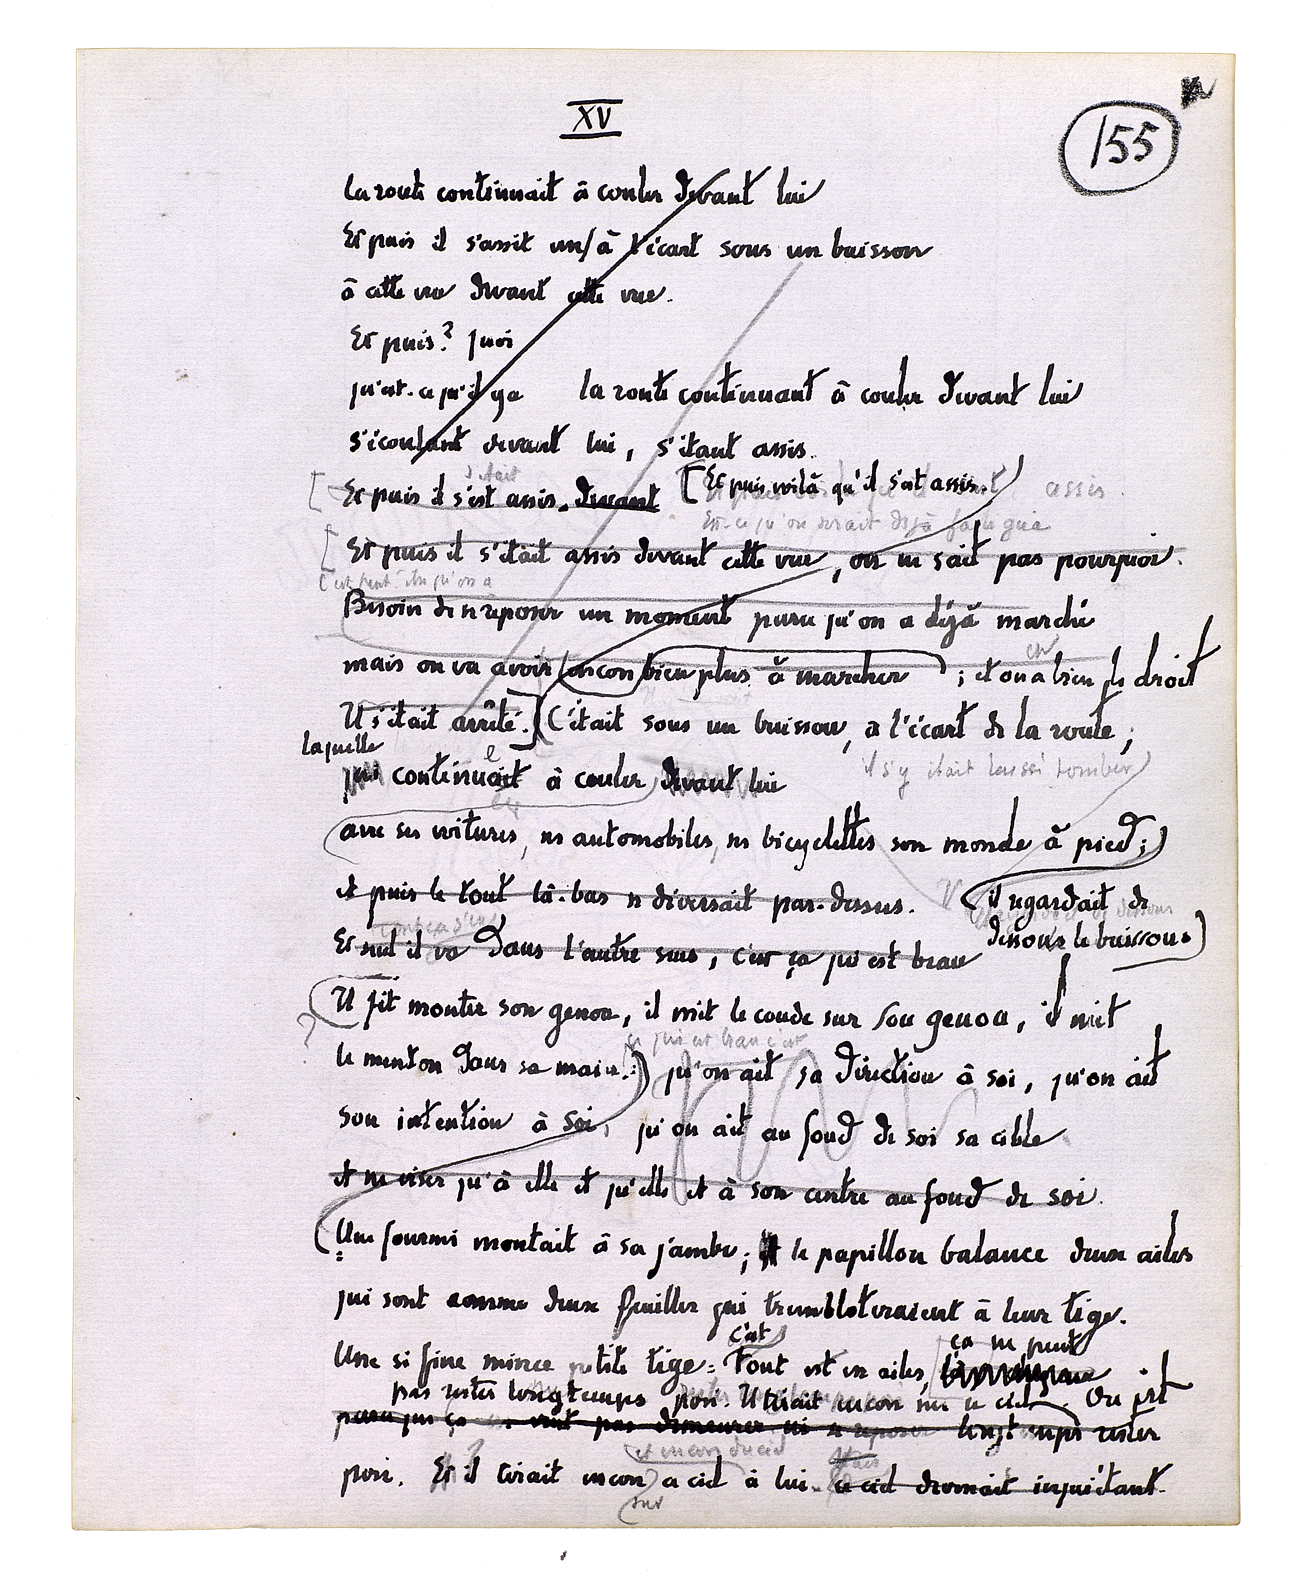 XV
155
La route continuait à couler devant lui
Et puis il s'assit un / à l'écart sous un buisson
à cette vue devant cette vue.
Et puis ? quoi
qu'est-ce qu'il y a la route continuant à couler devant lui
s'écoulant devant lui, s'étant assis.
s'était
[ Et puis il s'est assis. devant [ Et puis voilà qu'il s'est assis. assis.
Est-ce qu'on serait déjà fatigué
[ Et puis il s'était assis devant cette vue, on ne sait pas pourquoi.
C'est peut-être qu'on a
Besoin de se reposer un moment parce qu'on a déjà marché
en
mais on va avoir encore bien plus à marcher ; et on a bien le droit
Il s'était arrêté.] (C'était sous un buisson, à l'écart de la route ;
laquelle
qui continuait à couler devant lui
il s'y était laissé tomber)
(avec ses voitures, ses automobiles, ses bicyclettes son monde à pied ;)
et puis le tout là-bas se déversait par-dessus. il regardait de
dessous le buisson)
Et seul il va dans l'autre sens, c'est ça qui est beau
(Il fit monter son genou, il mit le coude sur son genou, il mit
?
ce qui est beau c'est
le menton dans sa main.) qu'on ait sa direction à soi, qu'on ait
son intention à soi, qu'on ait au fond de soi sa cible
et ne viser qu'à elle et qu'elle et à son centre au fond de soi.
(Une fourmi montait à sa jambe ; le papillon balance deux ailes
qui sont comme deux feuilles qui trembloteraient à leur tige.
c'est ça ne peut
Une si fine mince petite tige : Tout est en ailes,
pas rester longtemps posé. Il tirait encore sur le ciel. On git
parce que ça ne veut pas demeurer ni se reposer longtemps rester
et encore du ciel
posé. Et il tirait encore a ciel à lui. ce ciel devenait inquiétant.
sur